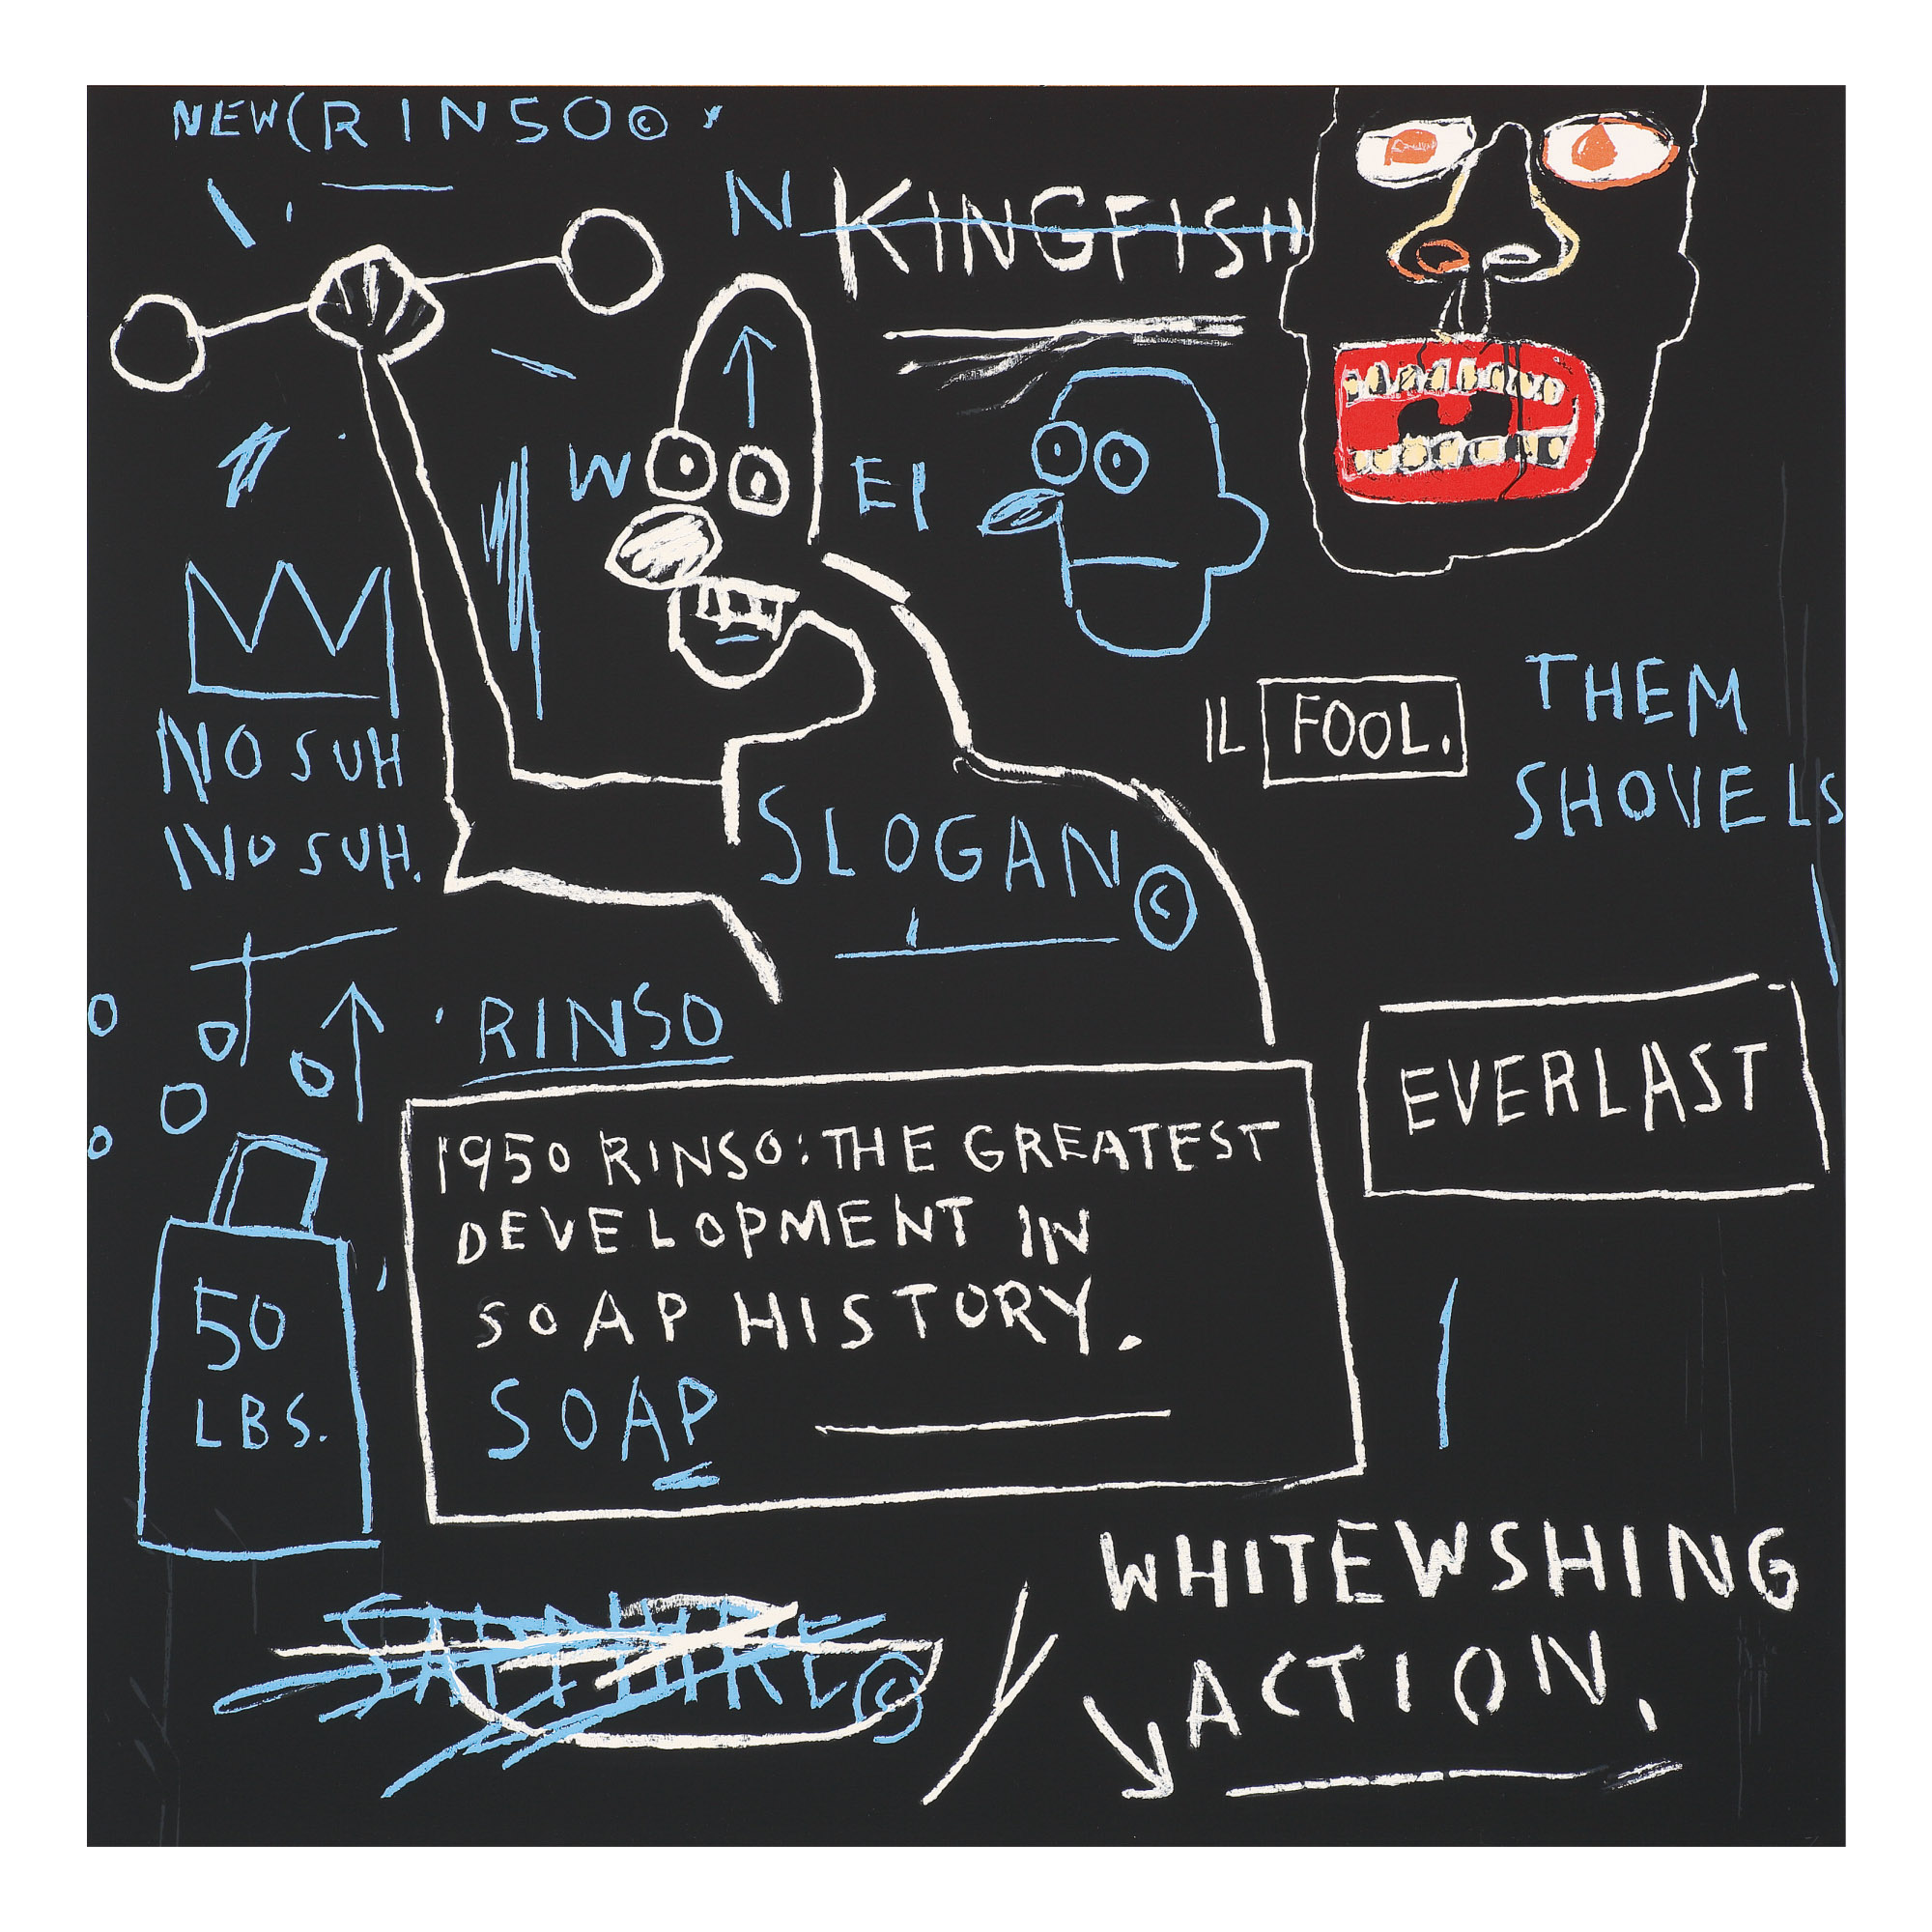 NEW (RINSO ©
N KINGFISH
W EI
NO SUH
NO SUH.
IL FOOL.
THEM
SHOVELS
SLOGAN ©
RINSO
EVERLAST
1950 RINSO: THE GREATEST
DEVELOPMENT IN
SOAP HISTORY.
SOAP
50
LBS.
©
WHITEWSHING
ACTION.